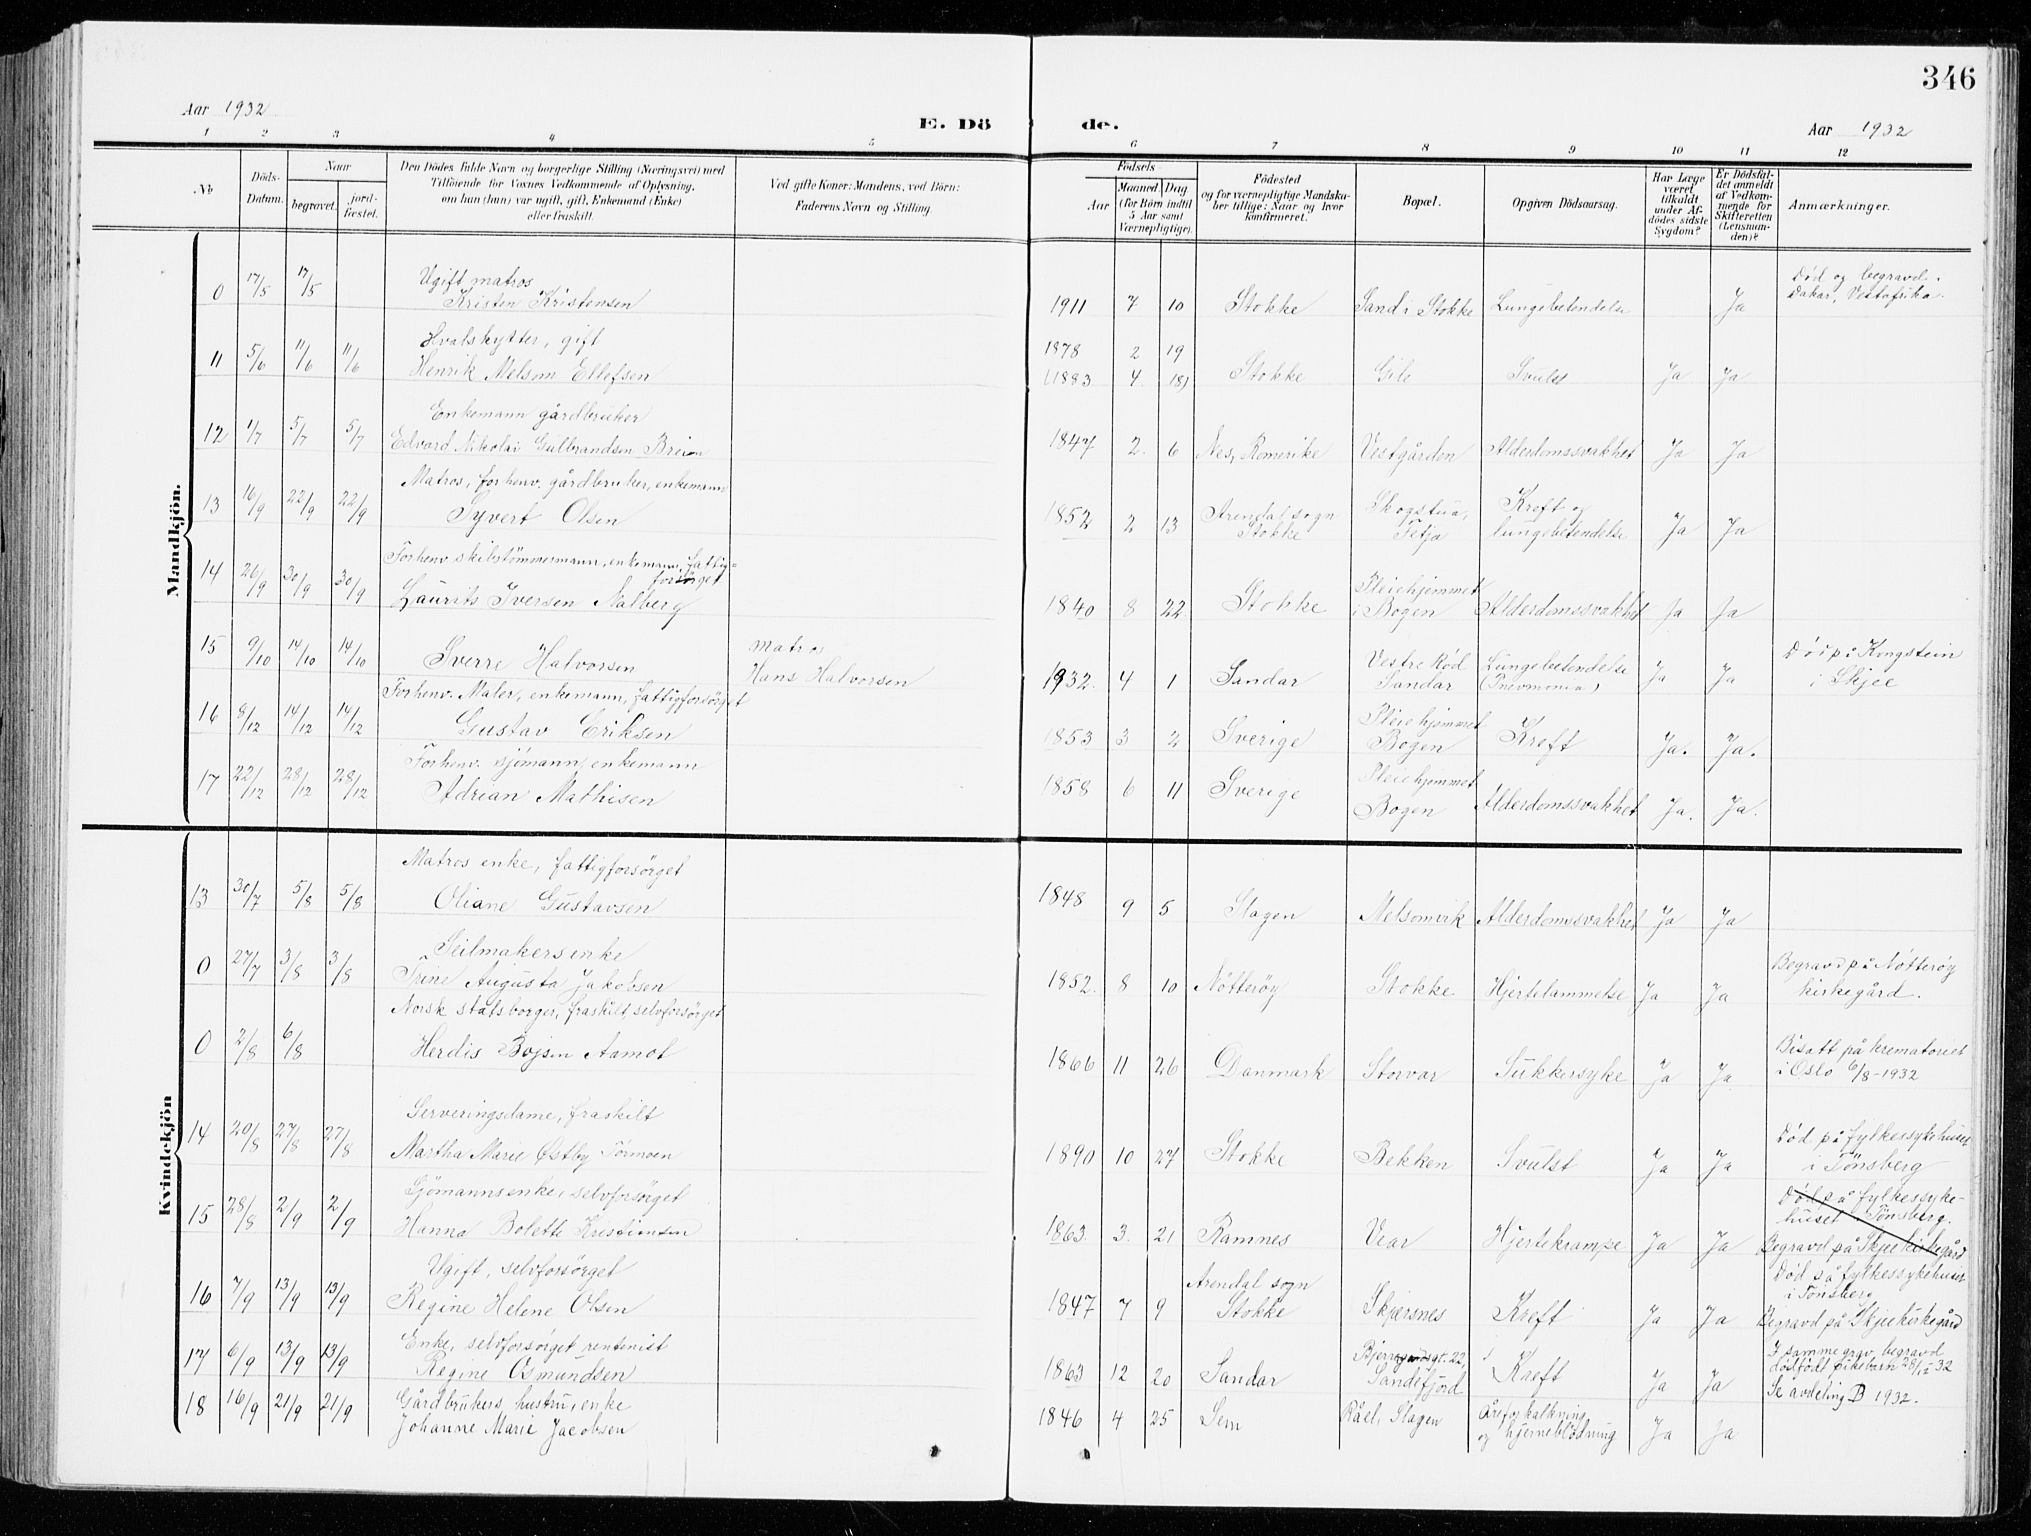 346
Aar 1932
E. Dö
de.
Aar 1932
1 2 3 4 5 6 7 8 9 10 11 12
No
Döds-
Datum.
Naar
begravet.
jord-
fæstet.
Den Dödes fulde Navn og borgerlige Stilling (Næringsvei) med
Tilföiende for Voxnes Vedkommende af Oplysning,
om han (hun) var ugift, gift, Enkemand (Enke)
eller fraskilt.
Ved gifte Koner: Mandens, ved Börn:
Faderens Navn og Stilling.
Födsels
Aar
Maaned. Dag
(for Börn indtil
5 Aar samt
Værnepligtige).
Födested
og for værnepligtige Mandska-
ber tillige: Naar og hvor
konfirmeret.
Bopæl.
Opgiven Dödsaarsag.
Har Læge
været
tilkaldt
under Af-
dödes sidste
Sygdom?
Er Dödsfal-
det anmeldt
af Vedkom-
mende for
Skifteretten
(Lensman-
den)?
Anmærkninger.
Mandkjön.
Ugift matros
0 17/5 17/5 Kristen Kristensen 1911 7 10 Stokke Sand i Stokke Lungebetendelse Ja
Død og begravd i
Dakar, Vestafrika.
Hvalskytter, gift
11 5/6 11/6 11/6 Henrik Melsom Ellefsen 1878 2 19
(1883 4 18) Stokke Gile Svulst Ja Ja
Enkemann gårdbruker
12 1/7 5/7 5/7 Edvard Nikolai Gulbrandsen Breien 1847 2 6 Nes, Romerike Vestgården Alderdomssvakhet Ja Ja
Matros, forhenv. gårdbruker, enkemann
13 16/9 22/9 22/9 Syvert Olsen 1852 2 13 Arendal sogn
Stokke Skogstua,
Fetja Kreft og
lungebetendelse Ja Ja
Forhenv. skibstömmermann, enkemann, fattig=
forsörget
14 26/9 30/9 30/9 Laurits Iversen Nalberg 1840 8 22 Stokke Pleiehjemmet
i Bogen Alderdomssvakhet Ja Ja
15 9/10 14/10 14/10 Sverre Halvorsen Matros
Hans Halvorsen 1932 4 1 Sandar Vestre Röd
Sandar Lungebetendelse
(Pnevmonia) Ja Ja Död på Kongstein
i Skjee
Forhenv. Maler, enkemann, fattigforsörget
16 8/12 14/12 14/12 Gustav Eriksen 1853 3 2 Sverige Pleiehjemmet
Bogen Kreft Ja. Ja.
Forhenv. sjömann, enkemann
17 22/12 28/12 28/12 Adrian Mathisen 1858 6 11 Sverige Pleiehjemmet
Bogen Alderdomssvakhet Ja. Ja.
Kvindekjön
Matros enke, fattigforsörget
13 30/7 5/8 5/8 Oliane Gustavsen 1848 9 5 Slagen Melsomvik Alderdomssvakhet Ja Ja
Seilmakersenke
0 27/7 3/8 3/8 Trine Augusta Jakobsen 1852. 8 10 Nötteröy Stokke Hjertelammelse Ja Ja Begravd på Nötteröy
kirkegård.
Norsk statsborger, fraskilt, selvforsörget
0 2/8 6/8 Herdis Bojsen Aamot 1866 11 26 Danmark Storvar Sukkersyke Ja Ja Bisatt på krematoriet
i Oslo 6/8-1932
Serveringsdame, fraskilt
14 20/8 27/8 27/8 Martha Marie Østby Törmoen 1890 10 27 Stokke Bekken Svulst Ja Ja Død på fylkessykehuset
i Tönsberg
Sjömannsenke, selvforsörget
15 28/8 2/9 2/9 Hanna Bolette Kristiansen 1863 3. 21 Ramnes Vear Hjertekrampe Ja Ja Død på fylkessyke-
huset i Tönsberg.
Begravd på Skjee kirkegård
Ugift, selvforsörget
16 7/9 13/9 13/9 Regine Helene Olsen 1847 7 9 Arendal sogn
Stokke Skjersnes Kreft Ja Ja Död på fylkessykehuset
i Tönsberg
Begravd på Skjee kirkegård
Enke, selvforsörget rentenist
17 6/9 13/9 13/9 Regine Osmundsen 1863 12 20 Sandar Bjerregaardsgt. 22,
Sandefjord Kreft Ja Ja I samme grav, begravd
dödfödt pikebarn 28/12-32
Se avdeling B 1932.
Gårdbrukers hustru, enke
18 16/9 21/9 21/9 Johanne Marie Jacobsen 1846 4 25 Sem Råel, Slagen Åreforkalkning
og hjerneblödning Ja Ja